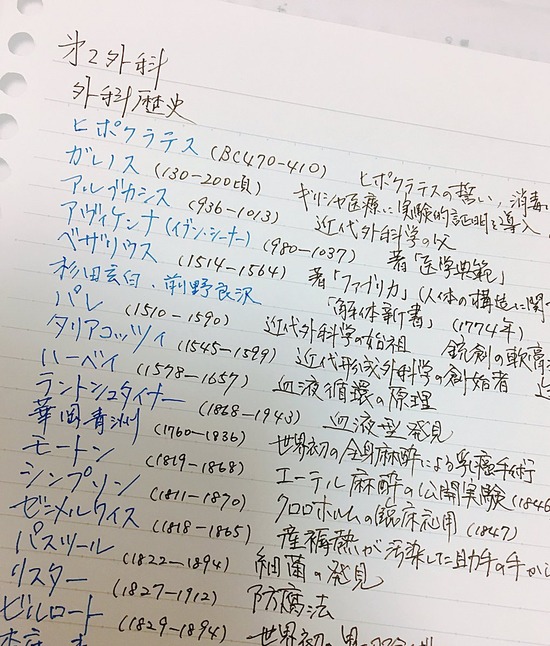 第2外科
外科歴史
ヒポクラテス (BC470-410) ヒポクラテスの誓い, 消毒
ガレノス (130-200頃) ギリシャ医療に実験的証明を導入
アルブカシス (936-1013) 近代外科学の父
アヴィケンナ (イブン・シーナー) (980-1037) 著「医学典範」
ベザリウス (1514-1564) 著「ファブリカ」(人体の構造に関
杉田玄白・前野良沢 「解体新書」 (1774年)
パレ (1510-1590) 近代外科学の始祖 銃創の軟膏
タリアコッツィ (1545-1599) 近代形成外科学の創始者
ハーベイ (1578-1657) 血液循環の原理
ラントシュタイナー (1868-1943) 血液型発見
華岡青洲 (1760-1836) 世界初の全身麻酔による乳癌手術
モートン (1819-1868) エーテル麻酔の公開実験 (1846
シンプソン (1811-1870) クロロホルムの臨床応用 (1847)
ゼンメルワイス (1818-1865) 産褥熱が汚染した助手の手から
パスツール (1822-1894) 細菌の発見
リスター (1827-1912) 防腐法
ビルロート (1829-1894) 世界初の胃